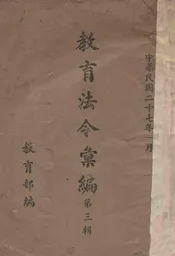 中華民國二十七年一月
教育法令彙編
第三輯
教育部編